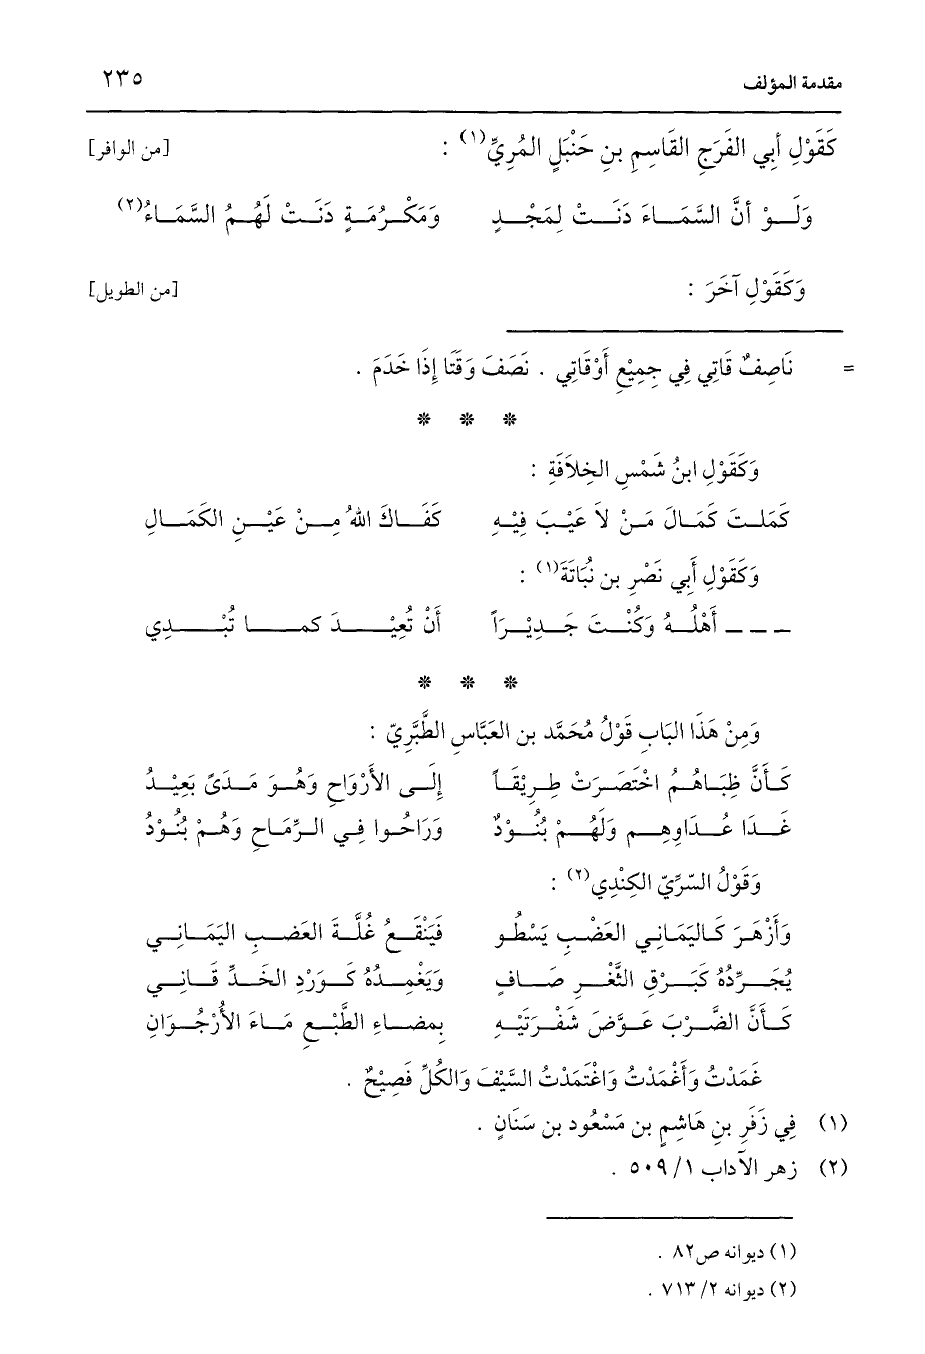 مقدمة المؤلف ٢٣٥
كَقَوْلِ أَبِي الفَرَجِ القَاسِمِ بنِ حَنْبَلٍ المُرِيِّ(١) : [من الوافر]
وَلَوْ أنَّ السَّمَاءَ دَنَتْ لِمَجْدٍ وَمَكْرُمَةٍ دَنَتْ لَهُمُ السَّمَاءُ(٢)
وَكَقَوْلِ آخَرَ : [من الطويل]
= نَاصِفٌ قَاتِي فِي جِمِيْعِ أَوْقَاتِي . نَصَفَ وَقَتَا إِذَا خَدَمَ .
* * *
وَكَقَوْلِ ابنُ شَمْسِ الخِلاَفَةِ :
كَمَلتَ كَمَالَ مَنْ لاَ عَيْبَ فِيْهِ كَفَاكَ اللهُ مِنْ عَيْنِ الكَمَالِ
وَكَقَوْلِ أَبِي نَصْرِ بن نُبَاتَةَ(١) :
ـ ـ ـ أَهْلُهُ وَكُنْتَ جَدِيْرَاً أَنْ تُعِيْدَ كما تُبْدِي
* * *
وَمِنْ هَذَا البَابِ قَوْلُ مُحَمَّد بن العَبَّاسِ الطَّبَّرِيّ :
كَأَنَّ ظِبَاهُمُ اخْتَصَرَتْ طِرِيْقَاً إِلَى الأَرْوَاحِ وَهُوَ مَدَىً بَعِيْدُ
غَدَا عُدَاوِهِم وَلَهُمْ بُنُوْدٌ وَرَاحُوا فِي الرِّمَاحِ وَهُمْ بُنُوْدُ
وَقَوْلُ السّرِّيّ الكِنْدِي(٢) :
وَأَزْهَرَ كَاليَمَانِي العَضْبِ يَسْطُو فَيَنْقَعُ غُلَّةَ العَضبِ اليَمَانِي
يُجَرِّدُهُ كَبَرْقِ الثَّغْرِ صَافٍ وَيَغْمِدُهُ كَوَرْدِ الخَدِّ قَانِي
كَأَنَّ الضَّرْبَ عَوَّضَ شَفْرَتَيْهِ بِمضَاءِ الطَّبْعِ مَاءَ الأُرْجُوَانِ
غَمَدْتُ وَأَغْمَدْتُ وَاغْتَمَدْتُ السَّيْفَ وَالكُلِّ فَصِيْحٌ .
(١) فِي زَفَرِ بنِ هَاشِمِ بن مَسْعُود بن سَنَانٍ .
(٢) زهر الآداب ١/ ٥٠٩ .
(١) ديوانه ص٨٢ .
(٢) ديوانه ٢/ ٧١٣ .